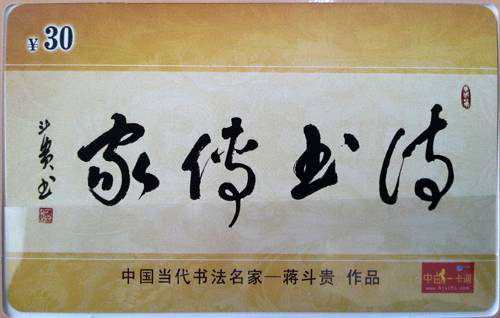 ¥30
诗书傳家
斗貴书
中国当代书法名家—蒋斗贵 作品
一卡通